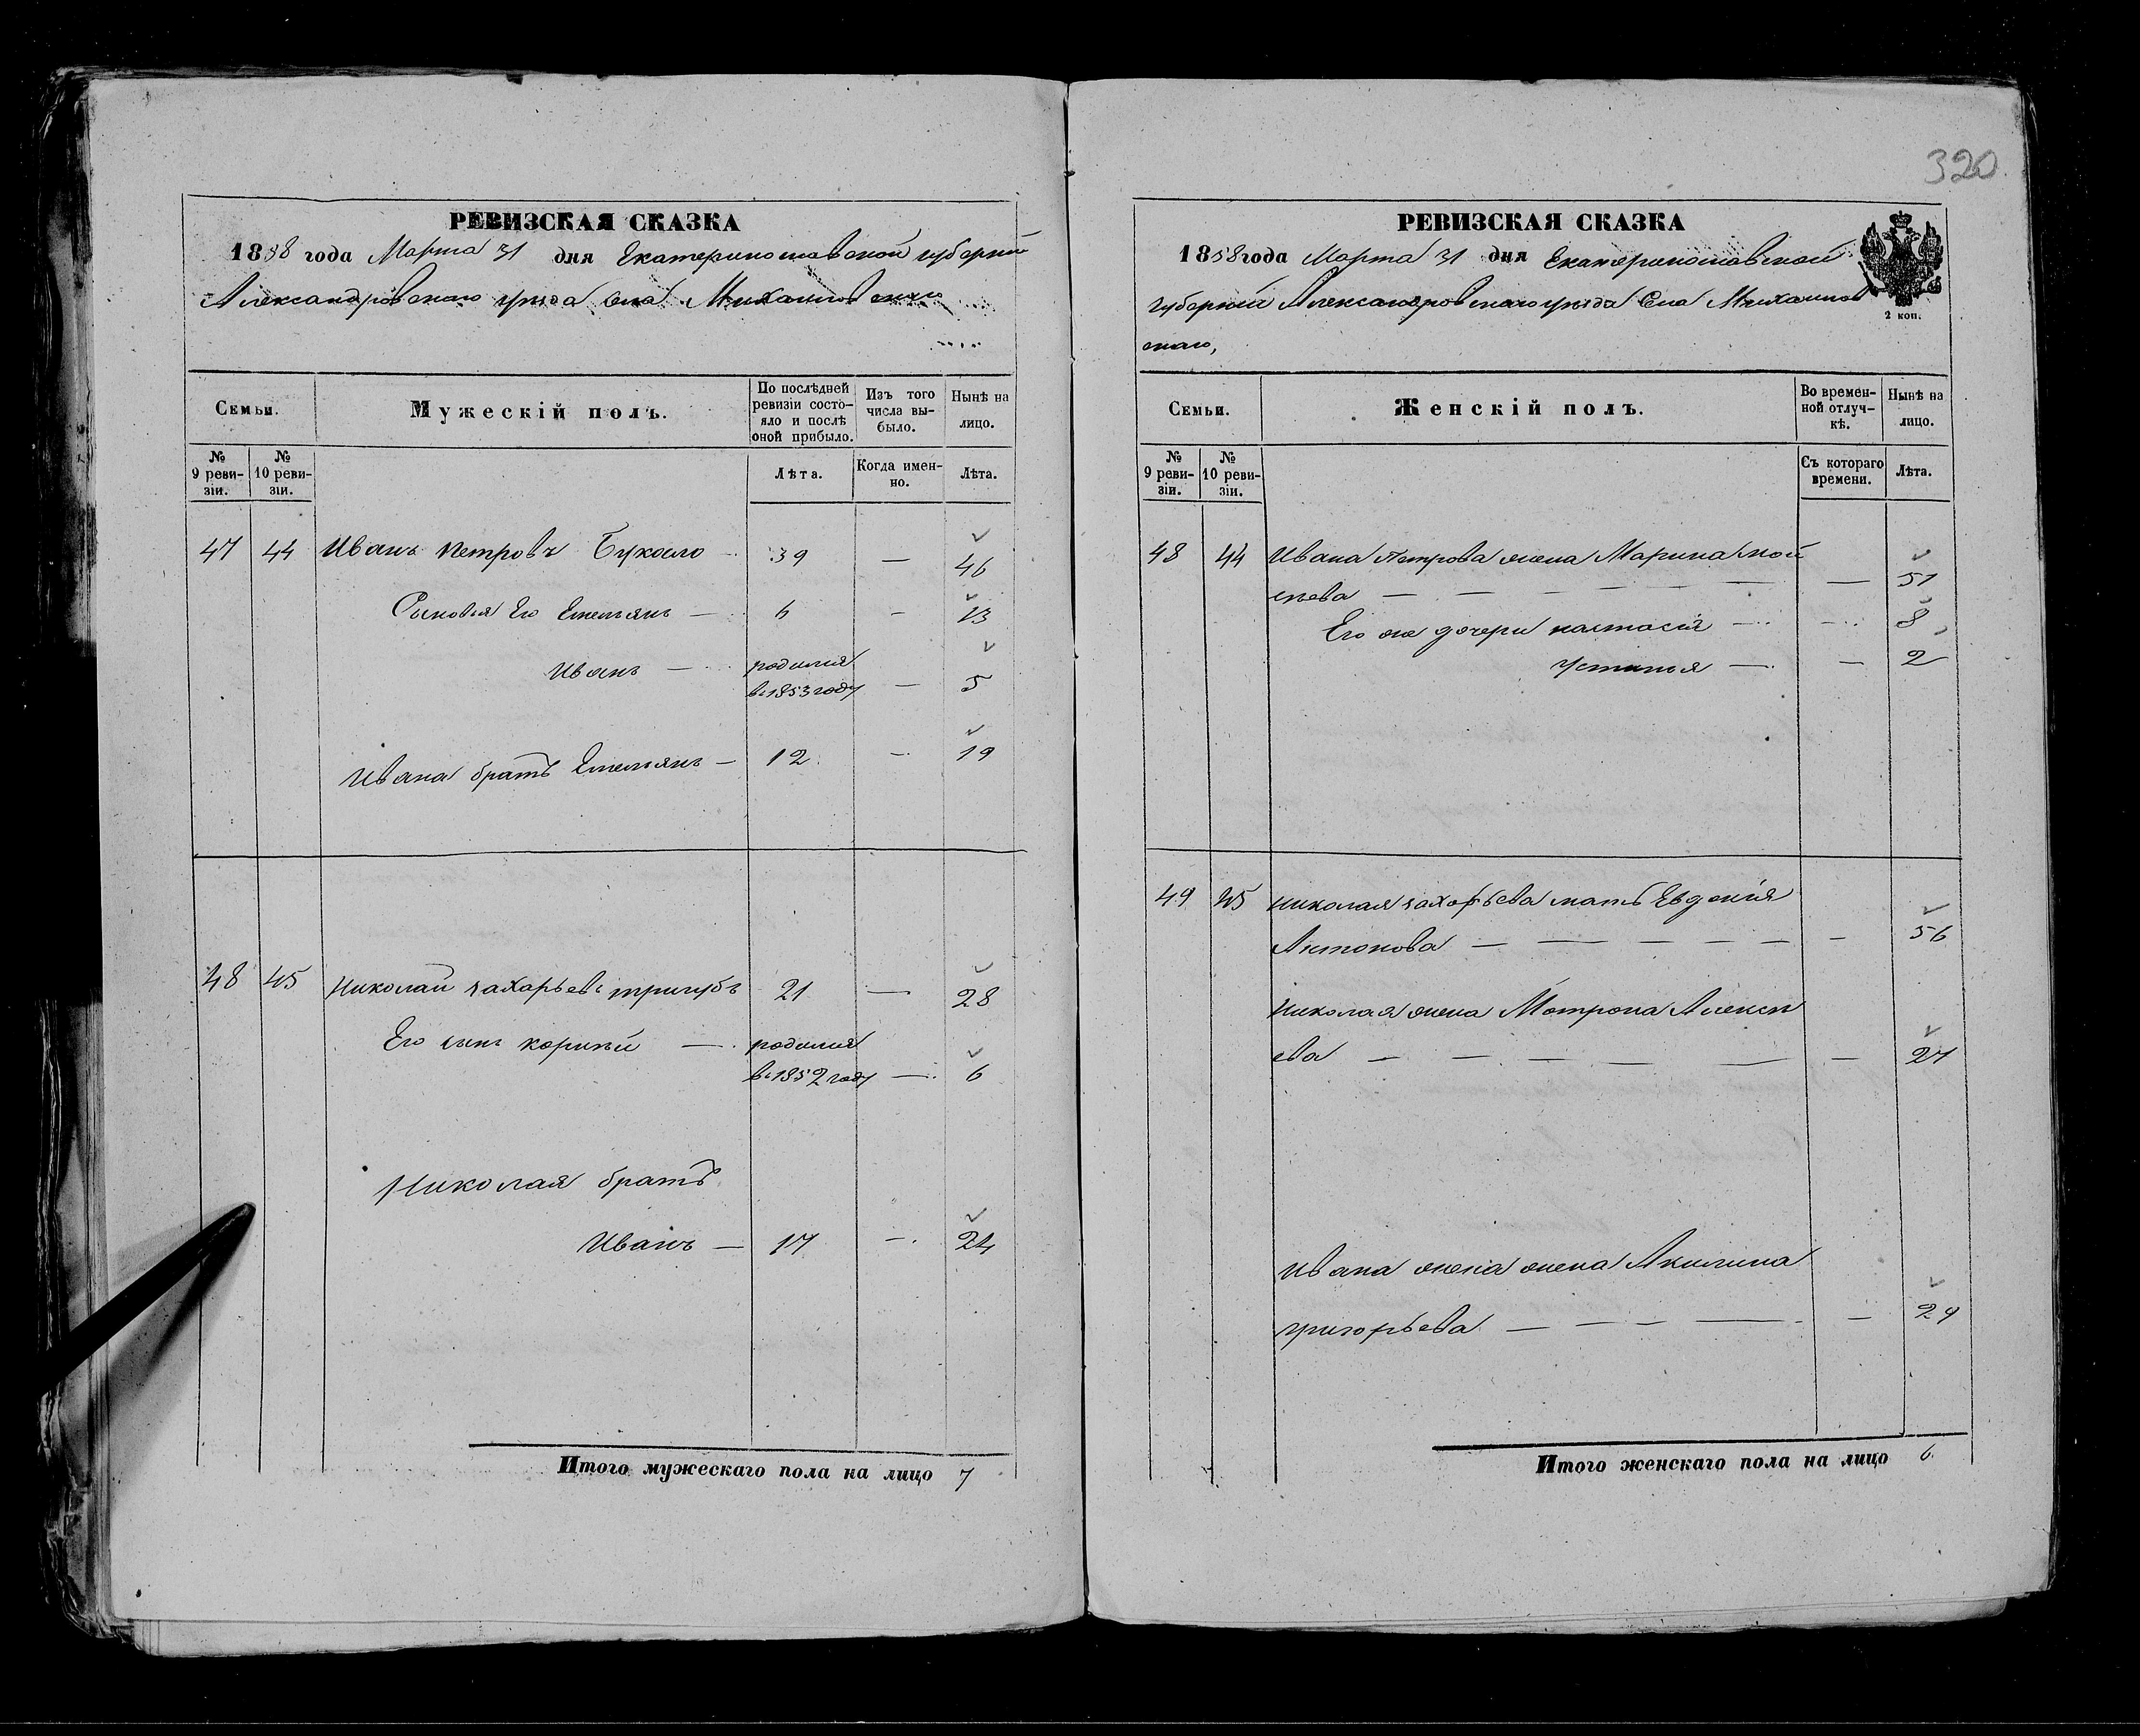 320.
РЕВИЗСКАЯ СКАЗКА
1858 года Марта 31 дня Екатеринославской губернии
Александровскаго уезда Села Михайловскаго
Семьи.
Мужескій полъ.
По послѣдней ревизіи состо-
яло и послѣ оной прибыло.
Изъ того числа вы-
было.
Нынѣ на лицо.
№ 9 реви-
зіи.
№ 10 реви-
зіи.
Лѣта.
Когда имен-
но.
Лѣта.
47 44 Иванъ Петровъ Букало 39 — 46
Сыновья Его Емельянъ — 6 — 13
Иванъ — родился
въ 1853 году — 5
Ивана братъ Емельянъ — 12 — 19
48 45 Николай Захарьевъ тригубъ 21 — 28
Его сынъ корнѣй — родился
въ 1852 году — 6
Николая братъ
Иванъ — 17 — 24
Итого мужескаго пола на лицо 7
РЕВИЗСКАЯ СКАЗКА
1858 года Марта 31 дня Екатеринославской
губернии Александровскаго уезда Села Михайлов
скаго,
2 коп.
Семьи.
Женскій полъ.
Во времен-
ной отлуч-
кѣ.
Нынѣ на лицо.
№ 9 реви-
зіи.
№ 10 реви-
зіи.
Съ котораго времени.
Лѣта.
48 44 Ивана Петрова жена Марина Мой
сѣева — — — — — — — 51
Его же дочери настасія — — 8
Устинья — — 2
49 45 николая захарьева мать Евдокія
Антонова — — — — — — 56
Николая жена Мотрона Алексѣ
ева — — — — — 27
Ивана жена жена Акилина
григорьева — — — — — 24
Итого женскаго пола на лицо 6.